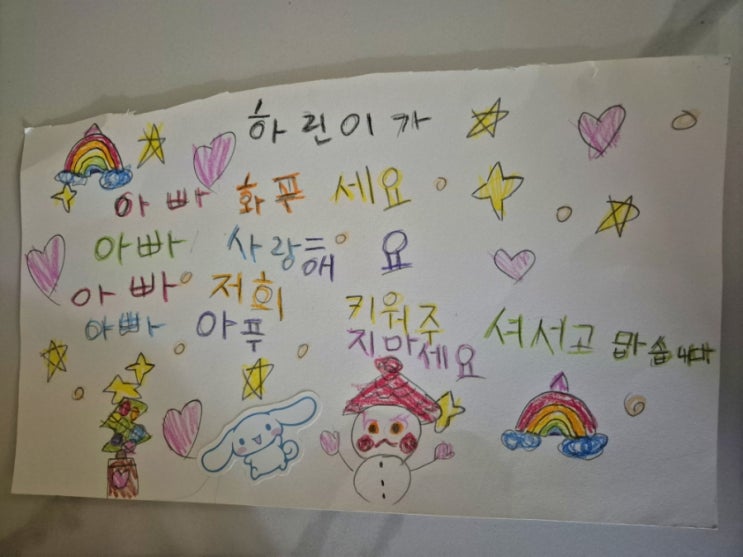 하린이가
아빠 화푸세요
아빠 사랑해요
아빠 저희 키워주셔서고맙습니다
아빠 아푸지마세요